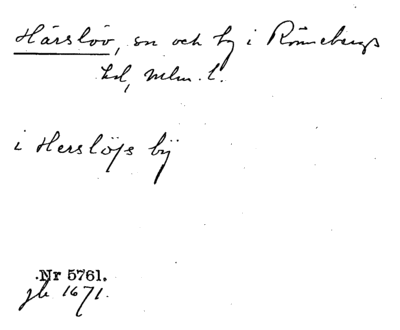 Härslöv, sn och by i Rönnebergs
hd, Mlm. l.
i Herslöfs bÿ
Nr 5761.
jb 1671.